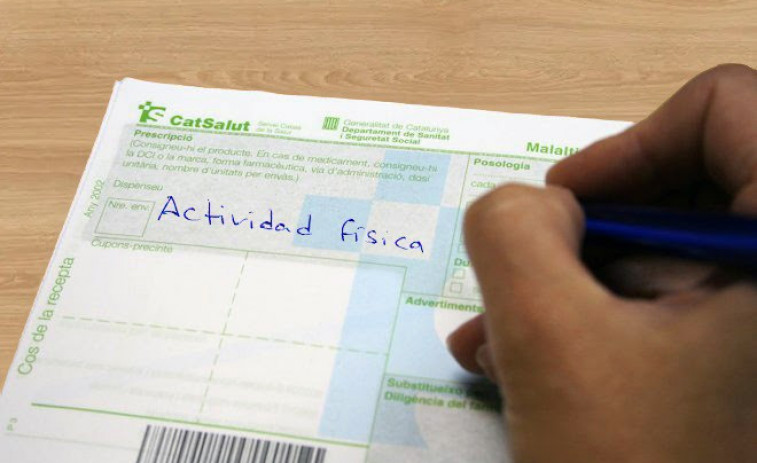 CatSalut Servei Català de la Salut
Generalitat de Catalunya
Departament de Sanitat
i Seguretat Social
Prescripció
(Consigneu-hi el producte. En cas de medicament, consigneu-hi
la DCI o la marca, forma farmacèutica, via d'administració, dosi
unitària, nombre d'unitats per envàs.)
Dispenseu
Nre. env
Actividad física
Posologia
cada
Du
Cupons-precinte
Advertiments
Substitueixo
Diligència del
Any 2002
Cos de la recepta